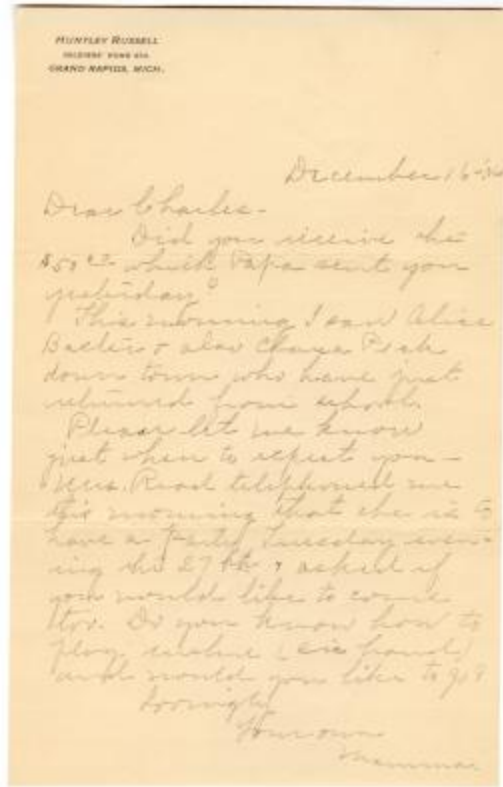 HUNTLEY RUSSELL
SOLDIERS' HOME STA.
GRAND RAPIDS, MICH.
December 16-
Dear Charles-
Did you receive the
$50 which Papa sent you
yesterday?
This morning I saw Alice
& also Chase Peck
down town who have just
returned from school.
Please let me know
just when to expect you-
Mrs. Read telephoned me
this morning that she is to
have a party Tuesday even-
ing the 27th & asked if
you would like to come
Do you know how to
play (six hand)
and would you like to go?
Lovingly
Your own
Mamma